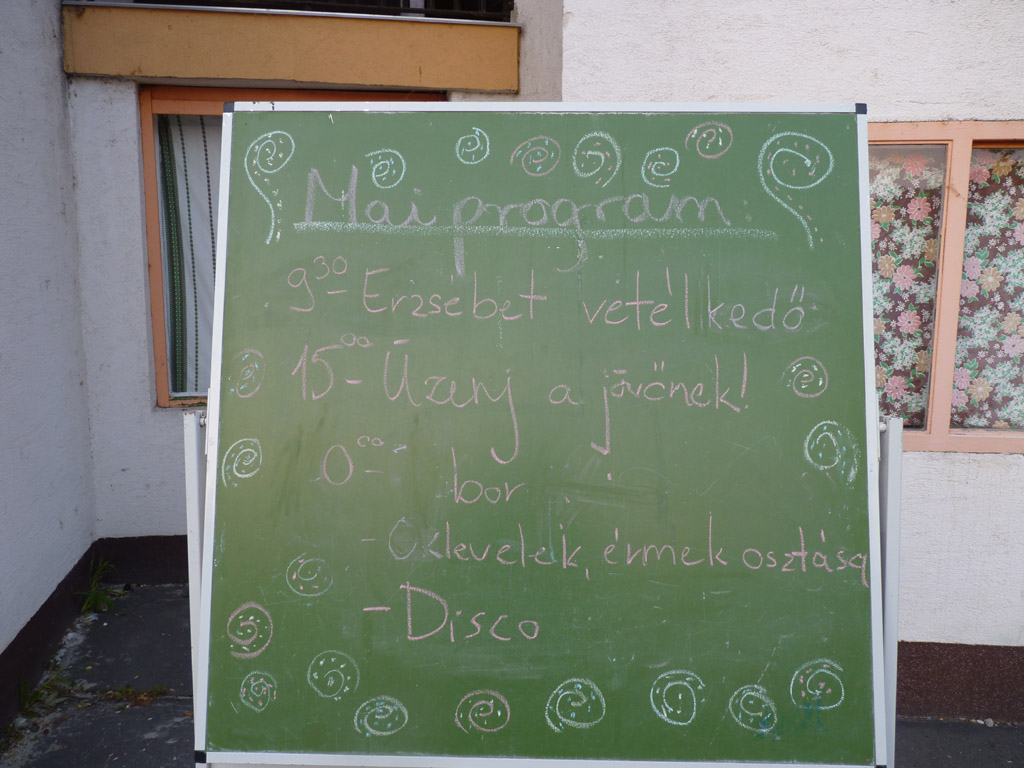 Mai program
9 30 - Erzsébet vetélkedő
15 00 - Üzenj a jövőnek!
0 00 - bor
- Oklevelek, érmek osztása
- Disco